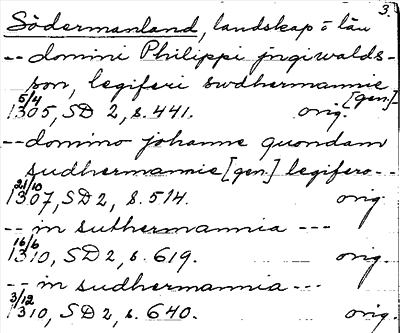 3.
Södermanland, landskap o län
-- domini Philippi jngiwalds-
son, legiferi swdhermannie
[gen.]
5/4
1305, SD 2, s. 441. orig.
-- domino johanne quondam
sudhermannie [gen.] legifero --
21/10
1307, SD 2, s. 514. orig.
-- in suthermannia ---
16/6
1310, SD 2, s. 619. orig.
-- in sudhermannia ---
3/12
1310, SD 2, s. 640. orig.